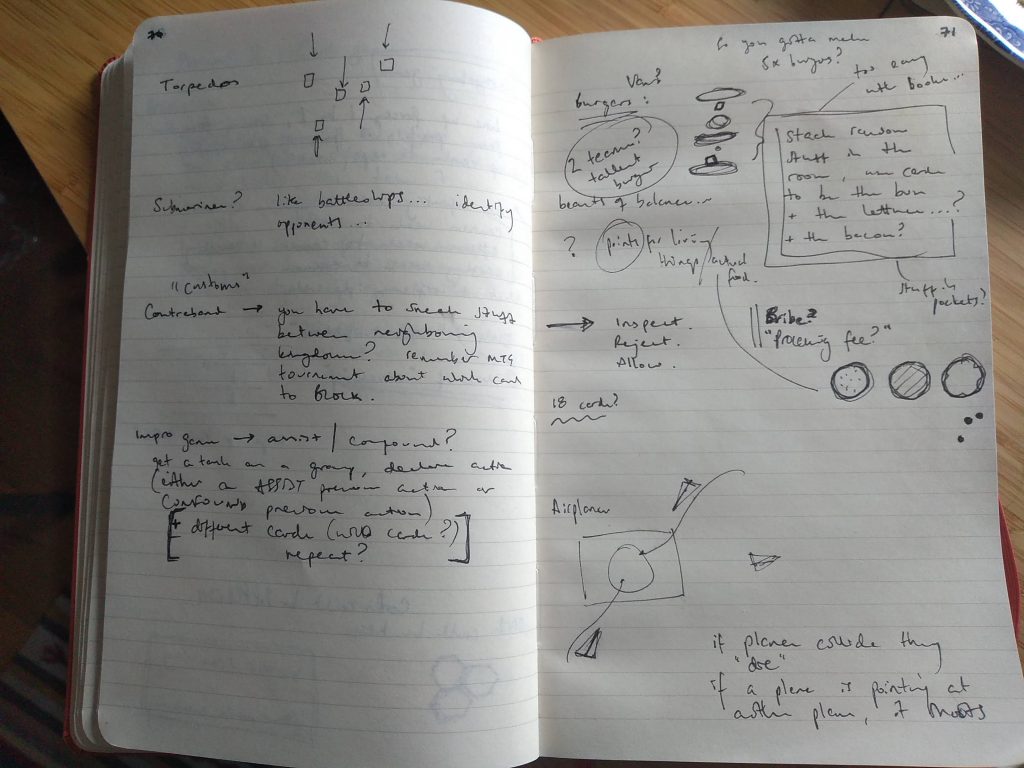 70
Torpedos
Submarines? like battleships... identify
opponents...
"Customs"
Contraband → you have to sneak stuff
between neighbouring
kingdoms? remember MTG
tournament about which card
to Block.
Impro game → assist / compound?
get a task as a group, declare action
(either a ASSIST previous action or
COMPOUND previous action)
[+ different cards (word cards?)
repeat?]
71
So you gotta make
5x burgers?
burgers:
2 teams?
tallest
burger
beauty of balance...
? points for living
things/actual
food.
too easy
with books...
stack random
stuff in the
room, use cards
to be the bun
+ the lettuce....?
+ the bacon?
stuff in
pockets?
→ Inspect.
Reject.
Allow.
Bribe?
"Processing fee?"
18 cards?
Airplanes
if planes collide they
"die"
if a plane is pointing at
another plane, it shoots